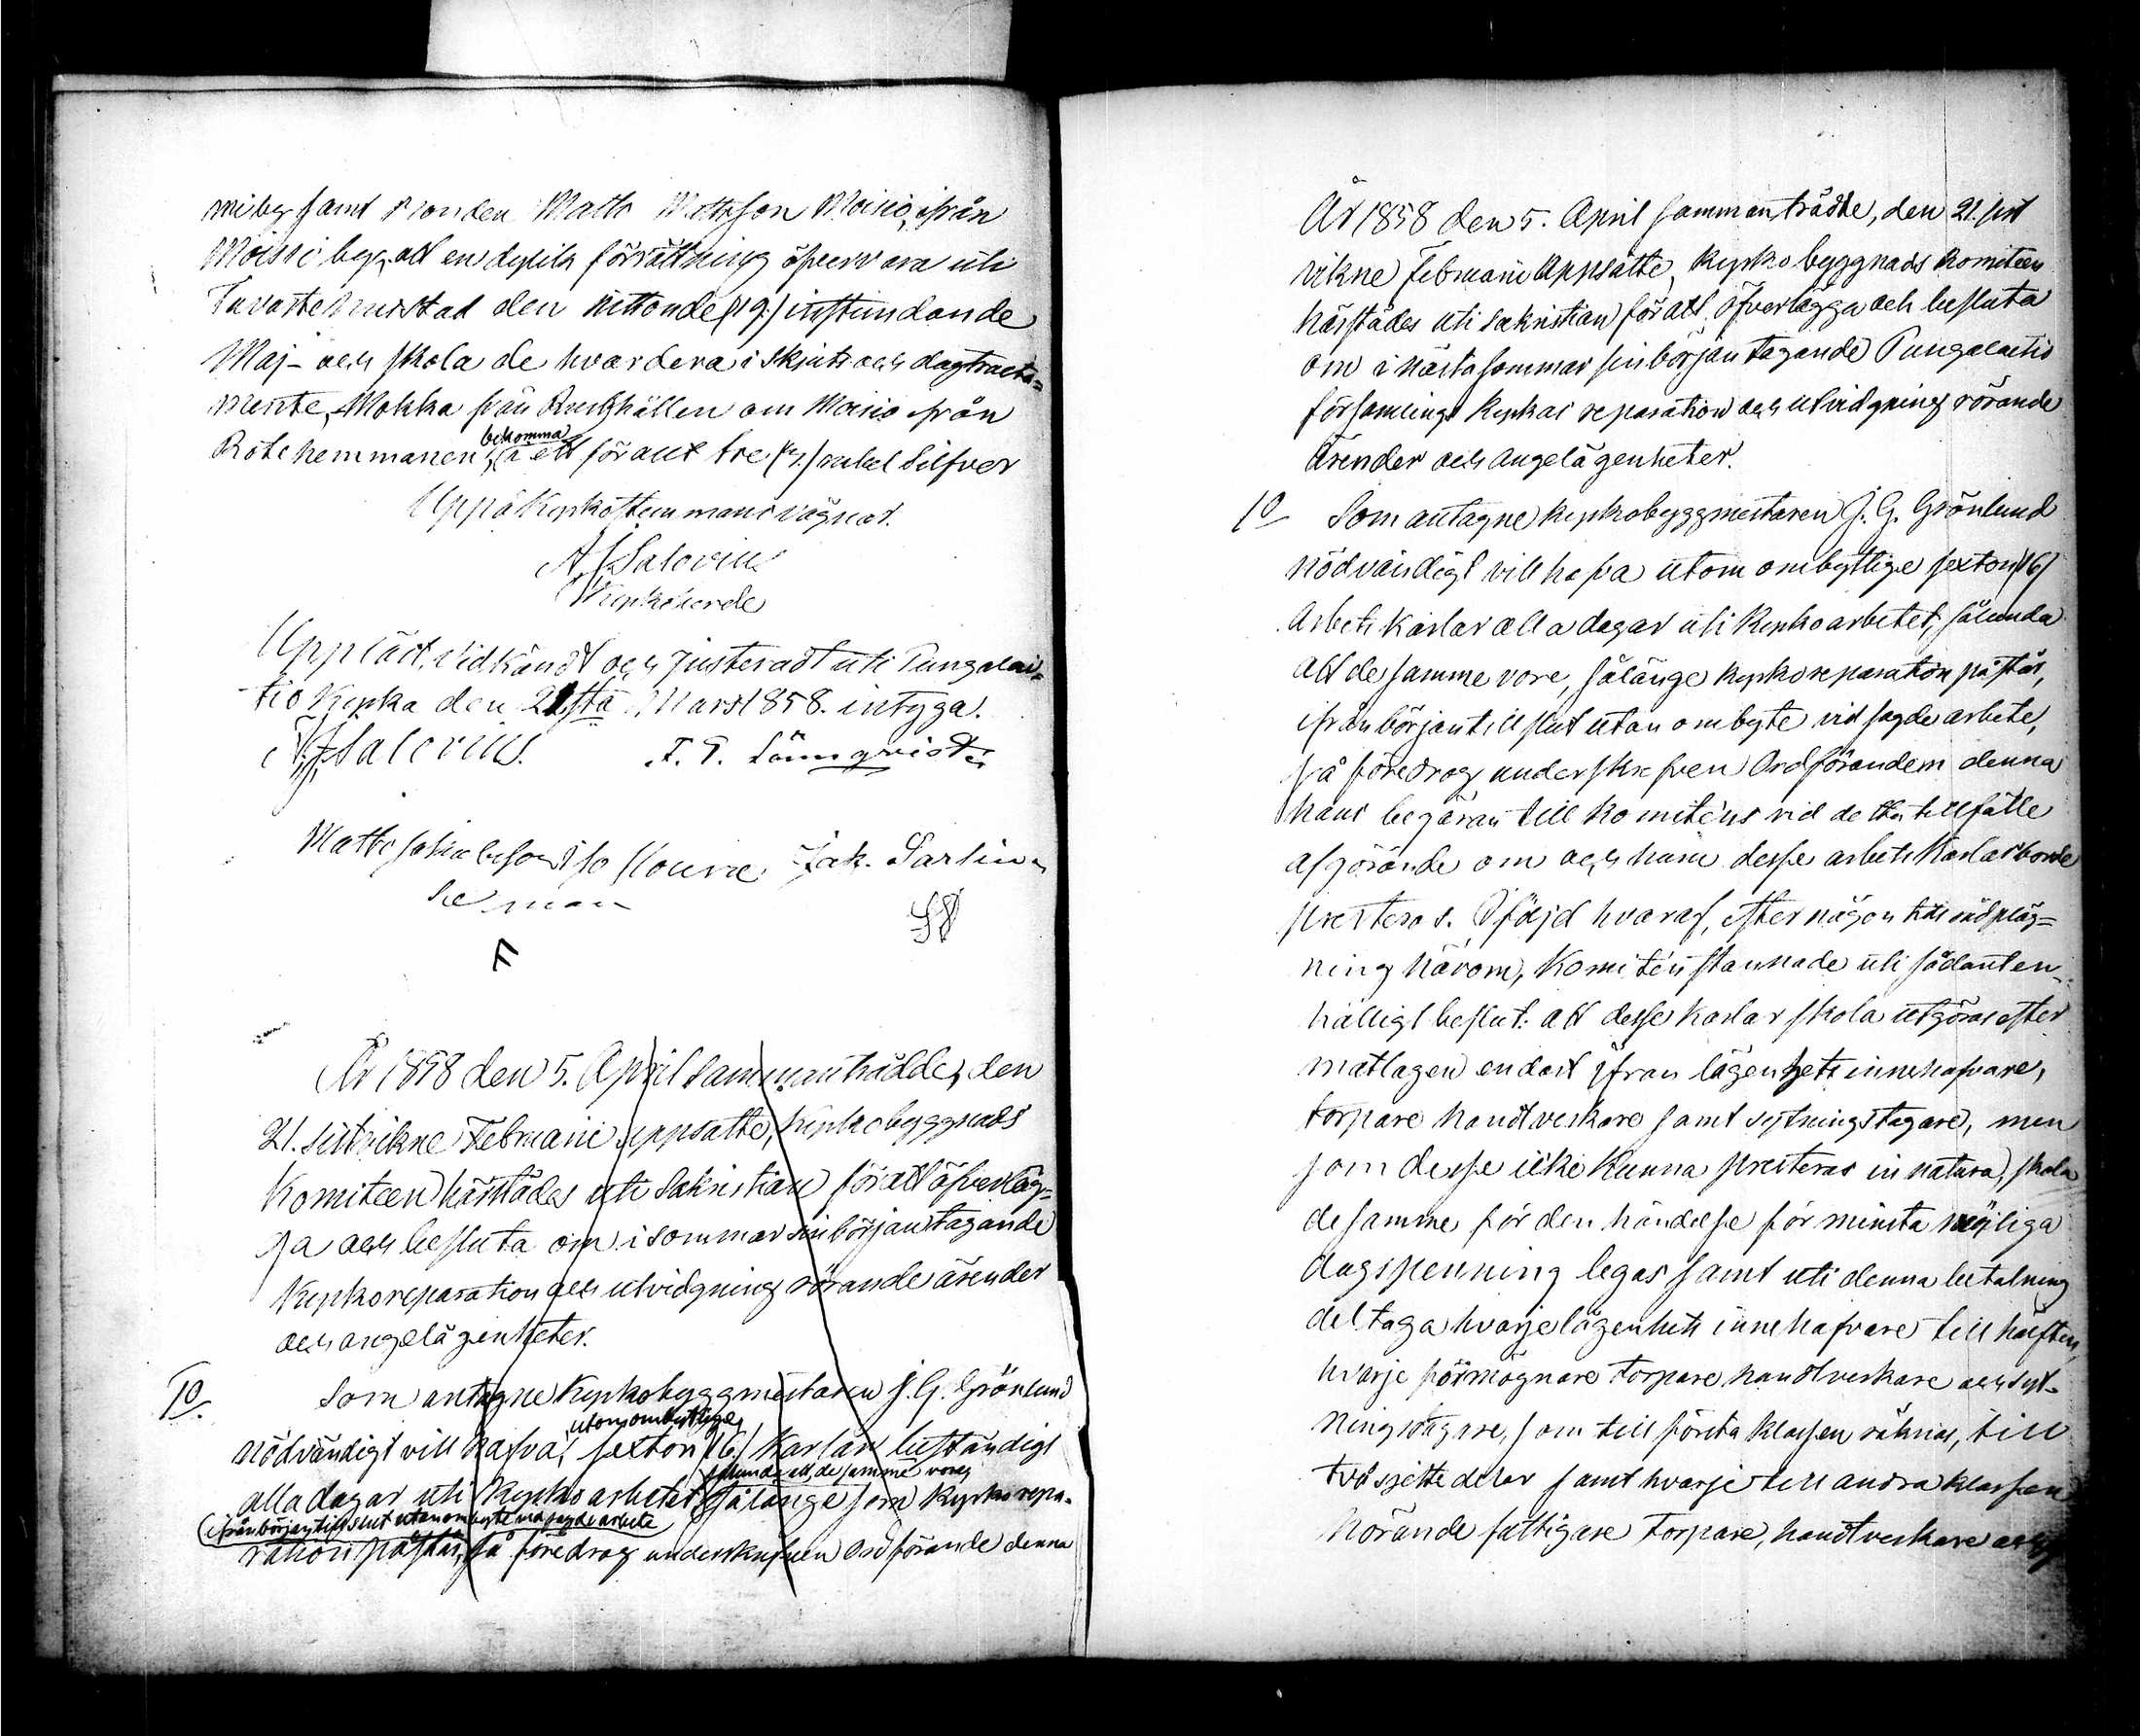 miby samt Bonden Matts Mattsson Moisio, ifrån
Moisio by, att en dylik förrättning öfvervara uti
Tavastehus stad den nittonde (19.) instundande
Maj - och skola de hvardera i skjuts och dagtracta-
mente, Mokka från Rusthållen om Moisio från
Rotehemmanen, bekomma à ett för allt tre (3.) rubel Silfver
Uppå Kyrkostemmans vägnar.
A J Salovius
Kyrkoherde
Uppläst, vidkändt och justeradt uti Pungalai-
tio Kyrka den 21sta Mars 1858. intyga.
A. J. Salovius. F. T. Lönnqvist
Matts Jakobsson Iso Kouva Jak. Parlin
År 1858 den 5. April sammanträdde, den
21. sistvikne Februarii uppsatte, Kyrkobyggnads
Komiteen härstädes uti Sakristian för att öfverläg-
ga och besluta om i sommar sin början tagande
Kyrkoreparation och utvidgning rörande ärender
och angelägenheter.
1o. Som antagne Kyrkobyggmestaren J. G. Grönlund
nödvändigt vill hafva, utom ombytlige, sexton (16) Karlar beständigt
alla dagar uti Kyrkoarbetet, sålunda att de samme vore, sålänge som Kyrkorepa-
ration påstår, ifrån början till slut utan ombyte vid sagde arbete så föredrog underskrifven Ordförande denna
År 1858 den 5. April sammanträdde, den 21. sist
vikne Februarii uppsatte, Kyrko byggnads Komiteen
härstädes uti Sakristian för att öfverlägga och besluta
om i nästa sommar sin början tagande Pungalaitio
församlings Kyrkas reparation och utvidgning rörande
Ärender och Angelägenheter.
1o Som antagne Kyrkobyggmestaren J. G. Grönlund
nödvändigt vill hafva utom ombytlige sexton (16)
Arbets Karlar alla dagar uti Kyrkoarbetet, sålunda
att de samme vore, sålänge Kyrkoreparation påstår,
ifrån början till slut utan ombyte vid sagde arbete,
så föredrog underskrefven Ordföranden denna
hans begäran till Komiténs vid detta tillfälle
afgörande om och huru desse arbets Karlar borde
presteras. I följd hvaraf, efter någon tids rådpläg-
ning härom, Komitén stannade uti sådant en-
hälligt beslut: att desse Karlar skola utgöras efter
matlagen endast ifrån lägenhets innehafvare,
torpare handtverkare samt sytningstagare, men
som desse icke Kunna presteras in natura, skola
de samme för den händelse för minsta möjliga
dagspenning legas samt uti denna betalning
deltaga hvarje lägenhets innehafvare till hälften,
hvarje förmögnare torpare handtverkare och syt-
ningstagare, som till första klassen räknas, till
två sjette delar samt hvarje till andra klassen
hörande fattigare torpare, handtverkare och